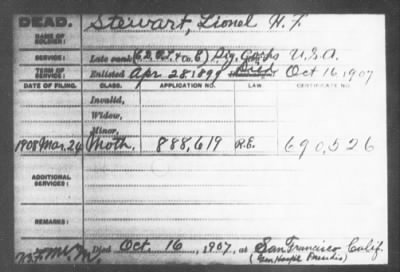 DEAD.
NAME OF SOLDIER:
Stewart, Lionel H. F.
SERVICE:
Late rank, Co. E) Sig. Corps U.S.A.
TERM OF SERVICE:
Enlisted Apr 28 1899 Died Oct 16, 1907
DATE OF FILING. CLASS. APPLICATION NO. LAW. CERTIFICATE NO.
Invalid,
Widow,
Minor,
1908 Mar. 26 Moth. 888,619 R.E. 690,526
ADDITIONAL SERVICES:
REMARKS:
Died Oct. 16, 1907, at San Francisco Calif.
(Gen Hospl Presidio)